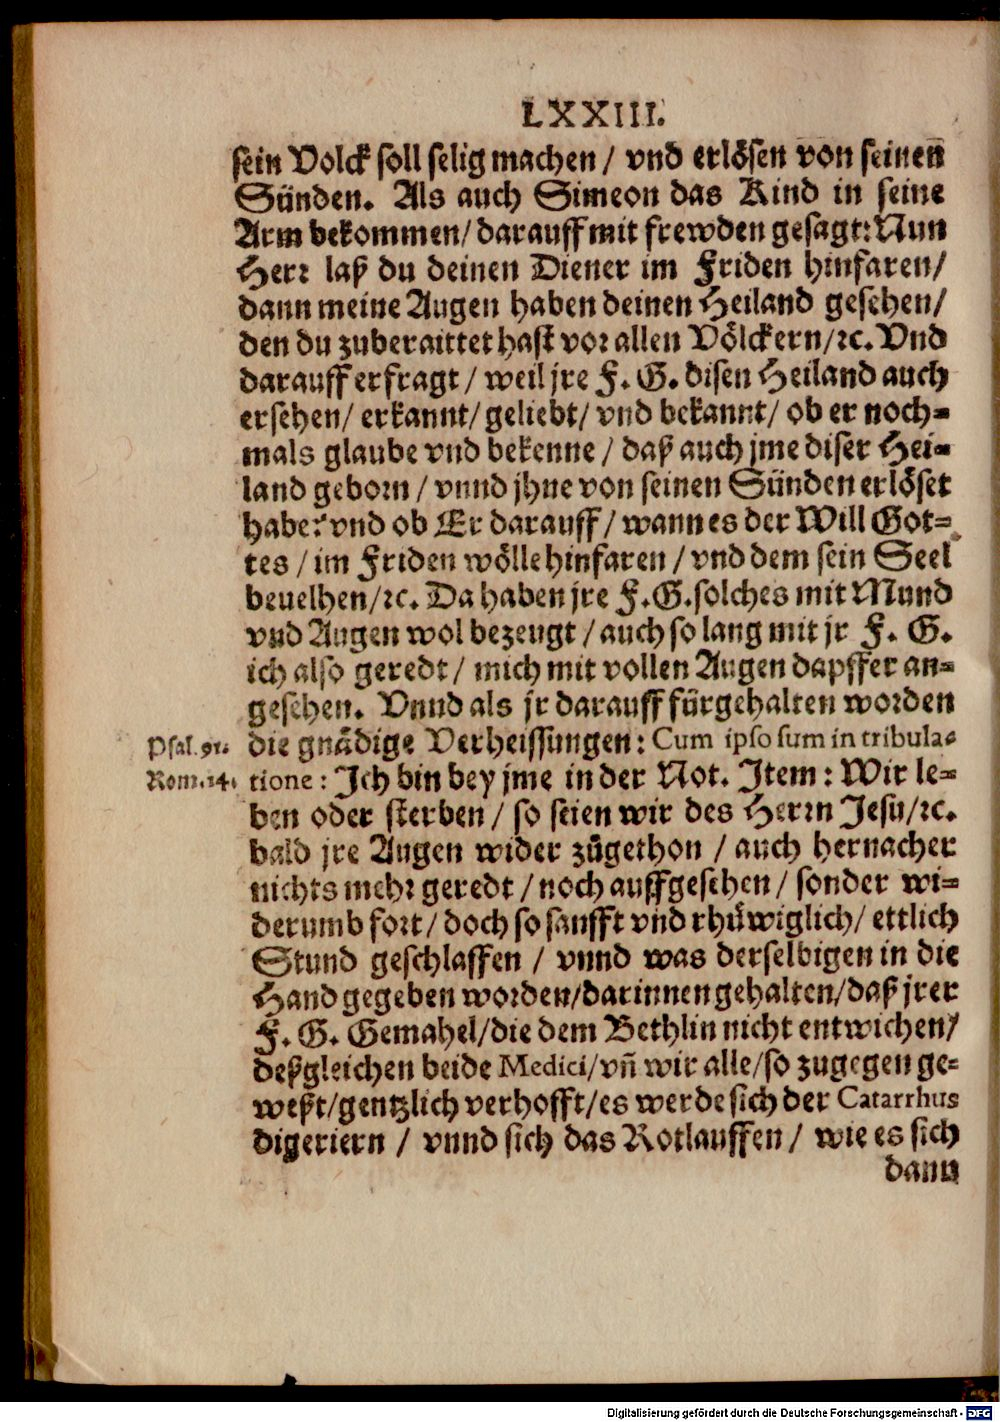 LXXIII.
sein Volck soll selig machen / vnd erlösen von seinen
Sünden. Als auch Simeon das Kind in seine
Arm bekommen/ darauff mit frewden gesagt: Nun
Herr laß du deinen Diener im Friden hinfaren/
dann meine Augen haben deinen Heiland gesehen/
den du zuberaittet hast vor allen Völckern/ꝛc. Vnd
darauff erfragt / weil jre F. G. disen Heiland auch
ersehen/ erkannt/ geliebt/ vnd bekannt/ ob er noch-
mals glaube vnd bekenne / daß auch jme diser Hei-
land geborn / vnnd jhne von seinen Sünden erlöset
habe? vnd ob Er darauff / wann es der Will Got-
tes / im Friden wölle hinfaren / vnd dem sein Seel
beuelhen/ꝛc. Da haben jre F. G. solches mit Mund
vnd Augen wol bezeugt / auch so lang mit jr F. G.
ich also geredt / mich mit vollen Augen dapffer an-
gesehen. Vnnd als jr darauff fürgehalten worden
Psal. 91. die gnädige Verheissungen: Cum ipso sum in tribula-
Rom. 14. tione: Ich bin bey jme in der Not. Item: Wir le-
ben oder sterben / so seien wir des Herrn Jesu/ꝛc.
bald jre Augen wider zůgethon / auch hernacher
nichts mehr geredt / noch auffgesehen / sonder wi-
derumb fort / doch so saufft vnd rhüwiglich/ ettlich
Stund geschlaffen / vnnd was derselbigen in die
Hand gegeben worden/ darinnen gehalten/ daß jrer
F. G. Gemahel/ die dem Bethlin nicht entwichen/
deßgleichen beide Medici/ vñ wir alle/ so zugegen ge-
weßt/ gentzlich verhofft/ es werde sich der Catarrhus
digeriern / vnnd sich das Rotlauffen / wie es sich
dann
Digitalisierung gefördert durch die Deutsche Forschungsgemeinschaft - DFG